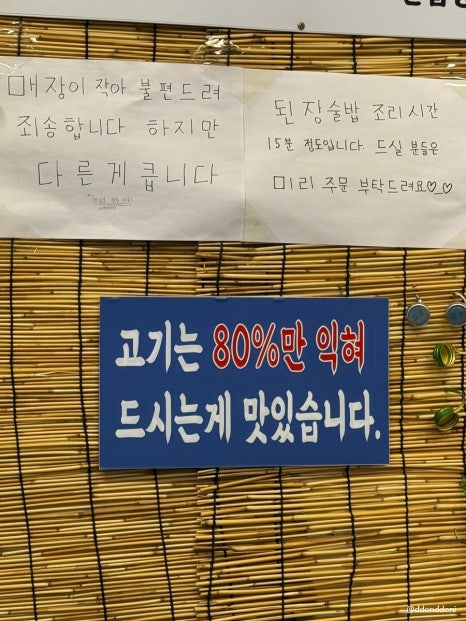 매장이 작아 불편드려
죄송합니다 하지만
다른게 큽니다
된장술밥 조리시간
15분 정도입니다. 드실 분들은
미리 주문 부탁드려요♡_♡
고기는 80%만 익혀
드시는게 맛있습니다.
@ddonddoni